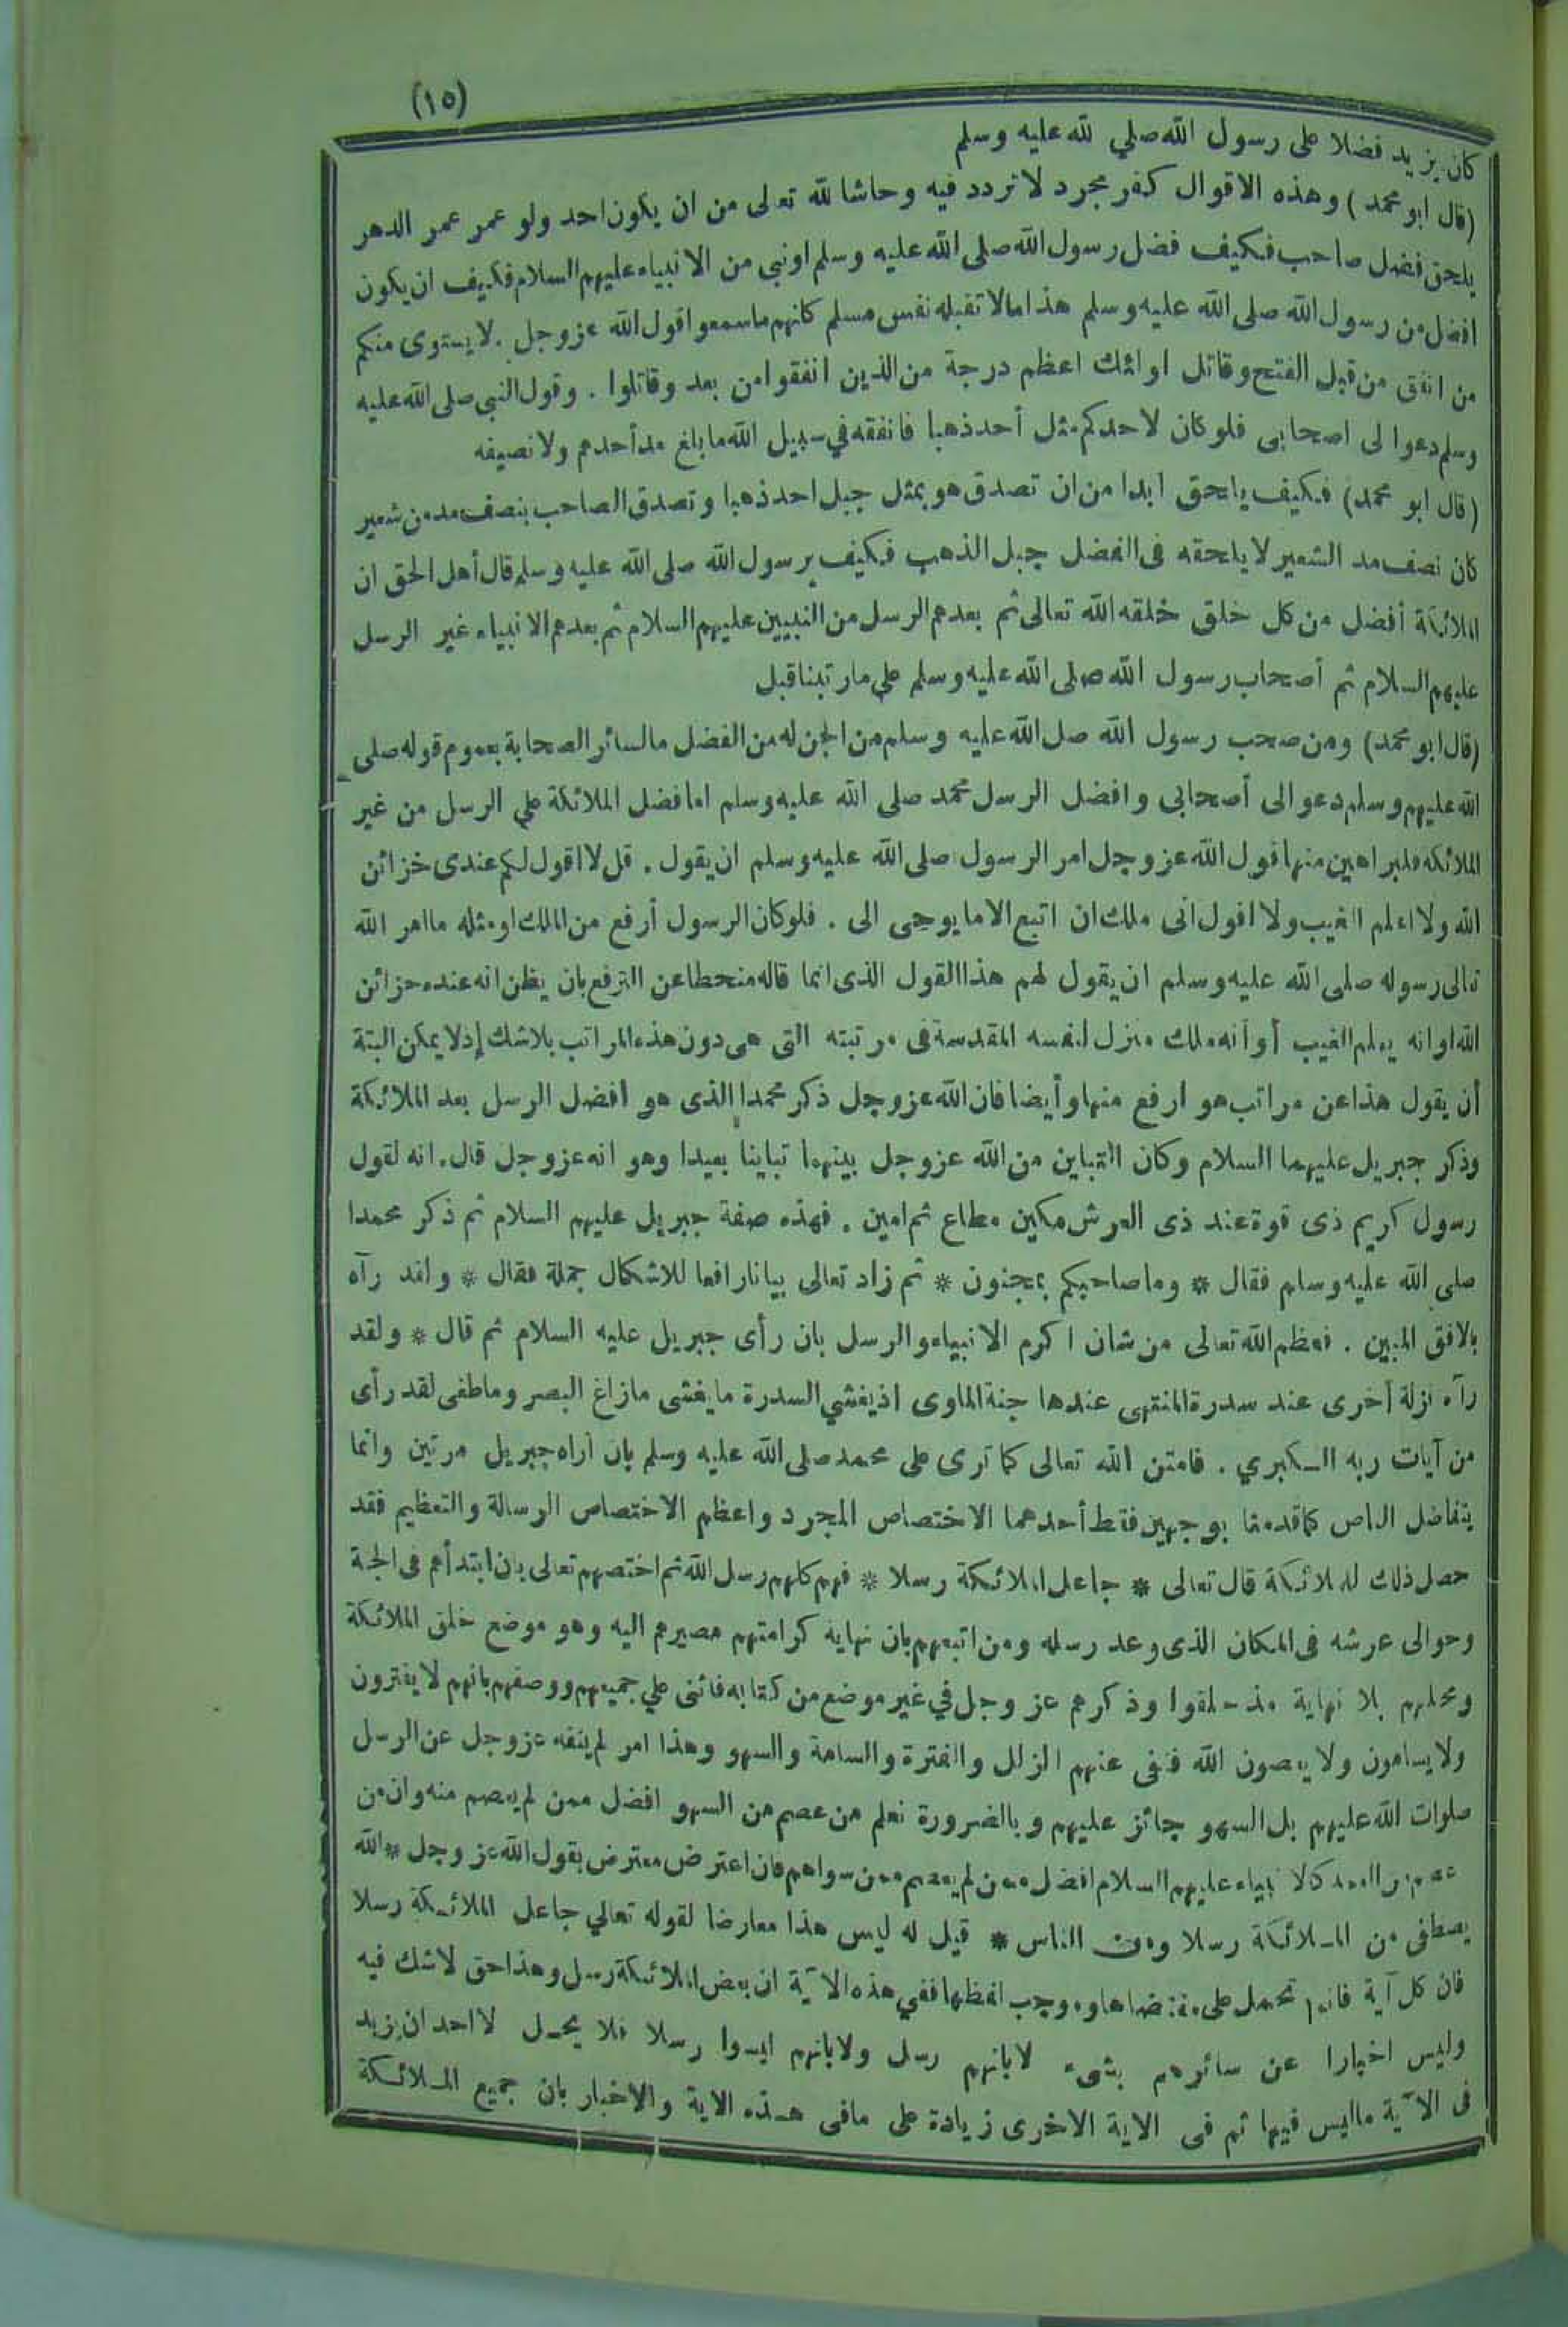 (١٥)
كان يزيد فضلا على رسول الله صلي لله عليه وسلم
(قال ابو محمد) وهذه الاقوال كفر مجرد لا تردد فيه وحاشا لله تعلى من ان يكون احد ولو عمر عمر الدهر
يلحق فضل صاحب فكيف فضل رسول الله صلى الله عليه وسلم او نبي من الانبياء عليهم السلام فكيف ان يكون
افضل من رسول الله صلى الله عليه وسلم هذا مالا تقبله نفس مسلم كانهم ما سمعوا قول الله عز وجل . لا يستوى منكم
من انفق من قبل الفتح وقاتل اوائك اعظم درجة من الذين انفقوا من بعد وقاتلوا . وقول النبي صلى الله عليه
وسلم دعوا لى اصحابى فلو كان لاحدكم مثل أحد ذهبا فانفقه في سبيل الله ما بلغ مد أحدهم ولا نصيفه
(قال ابو محمد) فكيف يلحق ابدا من ان تصدق هو بمثل جبل احد ذهبا وتصدق الصاحب بنصف مد من شعير
كان نصف مد الشعير لا يلحقه فى الفضل جبل الذهب فكيف برسول الله صلى الله عليه وسلم قال أهل الحق ان
الملائكة أفضل من كل خلق خلقه الله تعالى ثم بعدهم الرسل من النبيين عليهم السلام ثم بعدهم الانبياء غير الرسل
عليهم السلام ثم أصحاب رسول الله صلى الله عليه وسلم على ما رتبنا قبل
(قال ابو محمد) ومن صحب رسول الله صل الله عليه وسلم من الجن له من الفضل ما لسائر الصحابة بعموم قوله صلى
الله عليهم وسلم دعوا لى أصحابى وافضل الرسل محمد صلى الله عليه وسلم اما فضل الملائكة على الرسل من غير
الملائكة فلبراهين منها قول الله عز وجل امر الرسول صلى الله عليه وسلم ان يقول . قل لا اقول لكم عندى خزائن
الله ولا اعلم الغيب ولا اقول انى ملك ان اتبع الا ما يوحى الى . فلو كان الرسول أرفع من الملك او مثله ما امر الله
تعالى رسوله صلى الله عليه وسلم ان يقول لهم هذا القول الذى انما قاله منحطا عن الترفع بان يظن انه عنده خزائن
الله او انه يعلم الغيب أو أنه ملك منزل لنفسه المقدسة فى مرتبته التى هى دون هذه المراتب بلا شك إذ لا يمكن البتة
أن يقول هذا عن مراتب هو ارفع منها وأيضا فان الله عز وجل ذكر محمدا الذى هو افضل الرسل بعد الملائكة
وذكر جبريل عليهما السلام وكان التباين من الله عز وجل بينهما تباينا بعيدا وهو انه عز وجل قال . انه لقول
رسول كريم ذى قوة عند ذى العرش مكين مطاع ثم امين . فهذه صفة جبريل عليهم السلام ثم ذكر محمدا
صلى الله عليه وسلم فقال * وما صاحبكم بمجنون * ثم زاد تعالى بيانا رافعا للاشكال جملة فقال * ولقد رآه
بالافق المبين . فعظم الله تعالى من شان اكرم الانبياء والرسل بان رأى جبريل عليه السلام ثم قال * ولقد
رآه نزلة أخرى عند سدرة المنتهى عندها جنة الماوى اذ يغشي السدرة ما يغشى ما زاغ البصر وما طغى لقد رأى
من آيات ربه الكبري . فامتن الله تعالى كما ترى على محمد صلى الله عليه وسلم بان أراه جبريل مرتين وانما
يتفاضل الناس كما قدمنا بوجهين فقط أحدهما الاختصاص المجرد واعظم الاختصاص الرسالة والتعظيم فقد
حصل ذلك للملائكة قال تعالى * جاعل الملائكة رسلا * فهم كلهم رسل الله ثم اختصهم تعالى بان ابتدأهم فى الجنة
وحوالى عرشه فى المكان الذى وعد رسله ومن اتبعهم بان نهاية كرامتهم مصيرهم اليه وهو موضع خلق الملائكة
ومحلهم بلا نهاية مذ خلقوا وذكرهم عز وجل في غير موضع من كتابه فاثنى على جميعهم ووصفهم بانهم لا يفترون
ولا يسامون ولا يعصون الله فنفى عنهم الزلل والفترة والسامة والسهو وهذا امر لم ينفه عز وجل عن الرسل
صلوات الله عليهم بل السهو جائز عليهم وبالضرورة نعلم من عصم من السهو افضل ممن لم يعصم منه وان من
عصم من العمد كالانبياء عليهم السلام افضل ممن لم يعصم ممن سواهم فان اعترض معترض بقول الله عز وجل * الله
يصطفى من الملائكة رسلا ومن الناس * قيل له ليس هذا معارضا لقوله تعالي جاعل الملائكة رسلا
فان كل آية فانما تحمل على مقتضاها وموجب لفظها ففي هذه الآية ان بعض الملائكة رسل وهذا حق لا شك فيه
وليس اخبارا عن سائرهم بشىء لا بانهم رسل ولا بانهم ليسوا رسلا فلا يحل لاحد ان يزيد
فى الآية ما ليس فيها ثم فى الاية الاخرى زيادة على ما فى هذه الاية والاخبار بان جميع الملائكة